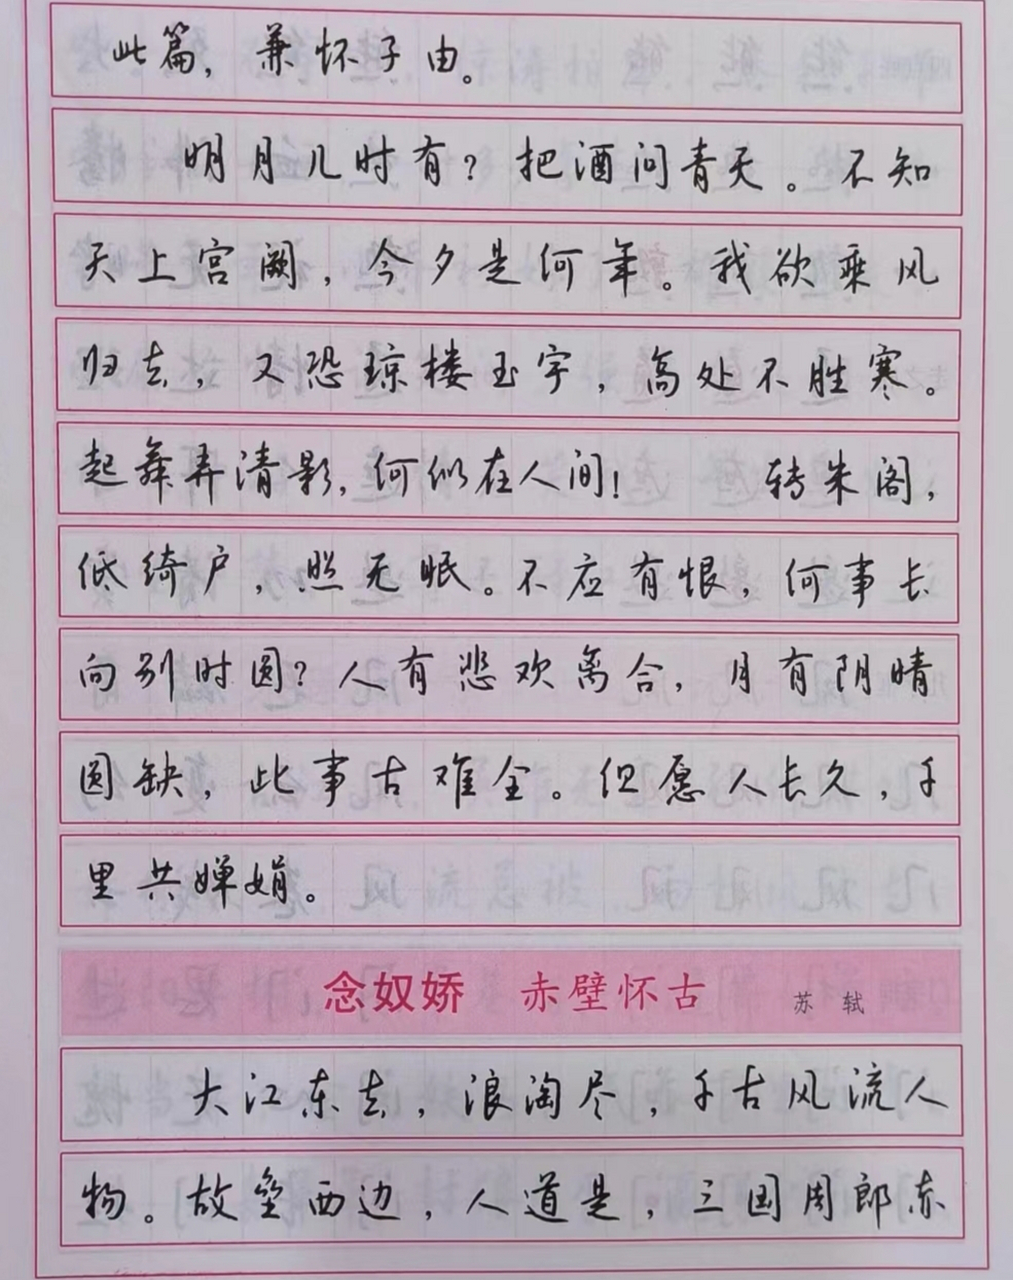 此篇，兼怀子由。
明月几时有？把酒问青天。不知
天上宫阙，今夕是何年。我欲乘风
归去，又恐琼楼玉宇，高处不胜寒。
起舞弄清影，何似在人间！ 转朱阁，
低绮户，照无眠。不应有恨，何事长
向别时圆？人有悲欢离合，月有阴晴
圆缺，此事古难全。但愿人长久，千
里共婵娟。
念奴娇 赤壁怀古 苏轼
大江东去，浪淘尽，千古风流人
物。故垒西边，人道是，三国周郎赤